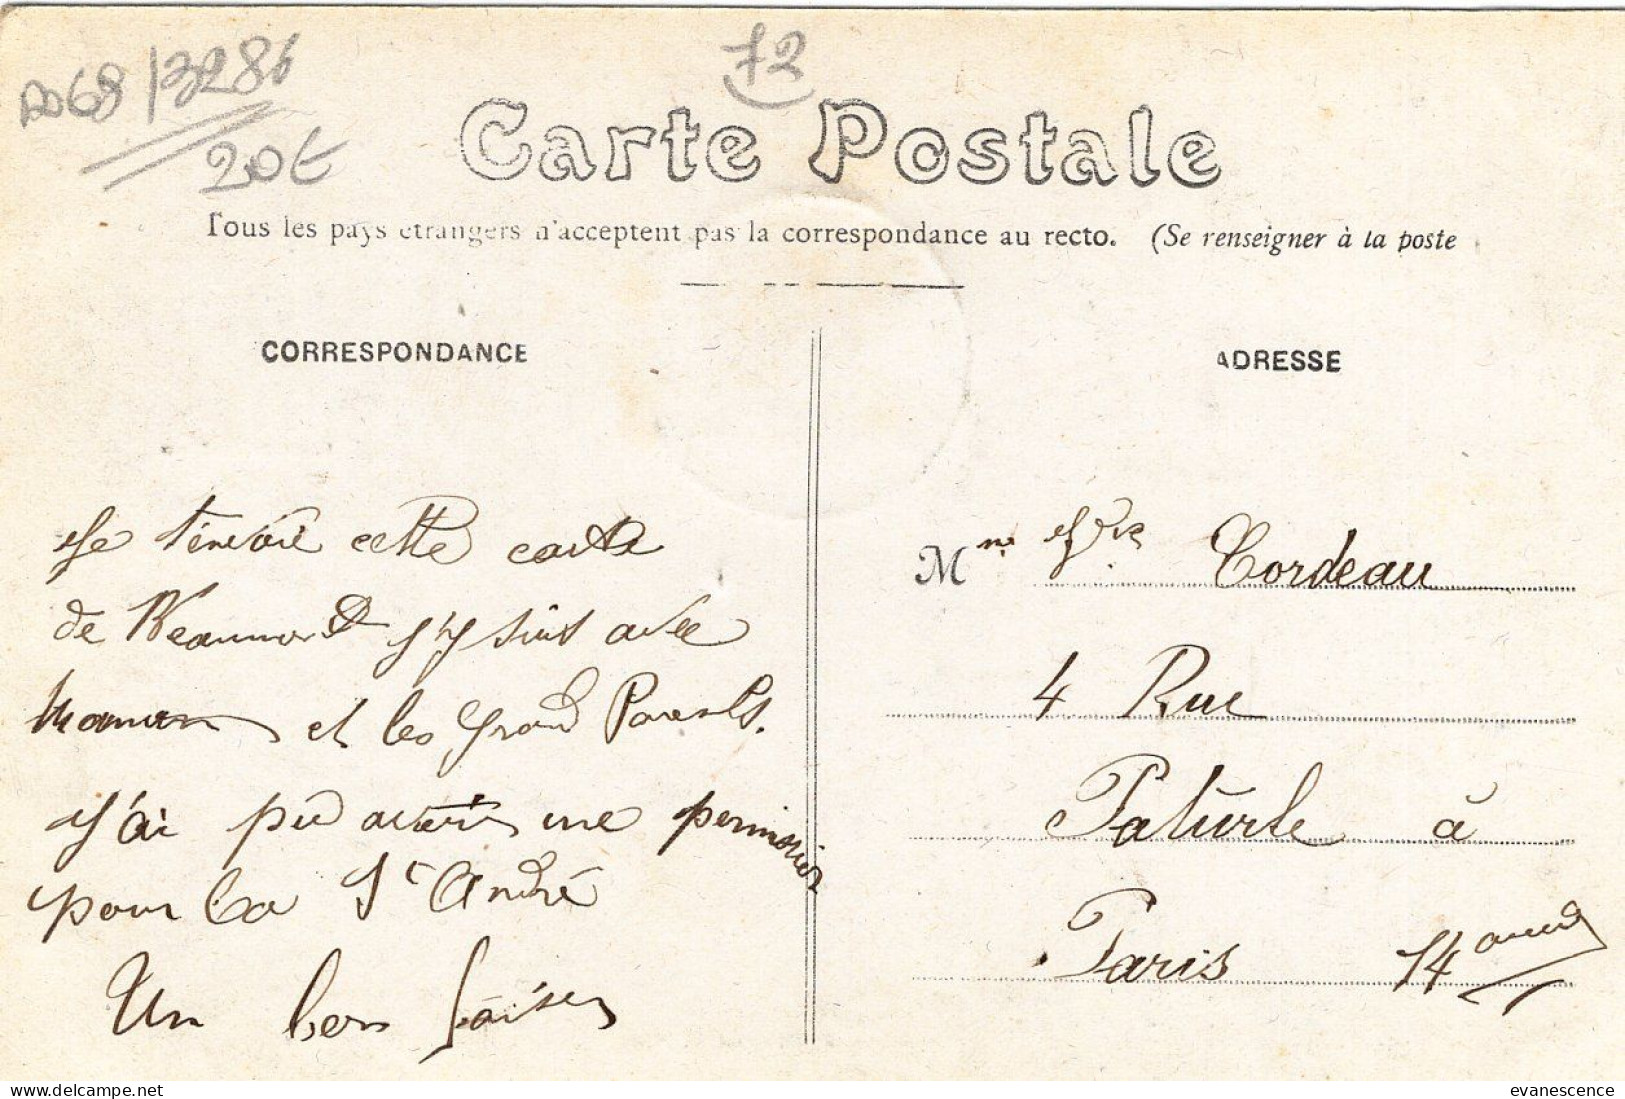 D68/3286
20€
72
Carte Postale
Tous les pays étrangers n'acceptent pas la correspondance au recto. (Se renseigner à la poste
CORRESPONDANCE
ADRESSE
Je t'envoie cette carte
de Beaumont j'y suis avec
maman et les Grand Parents.
J'ai pu avoir une permission
pour la St André
Un bon baiser
Mme Cordeau
4 Rue
Paturle à
Paris 14
delcampe.net
evanescence